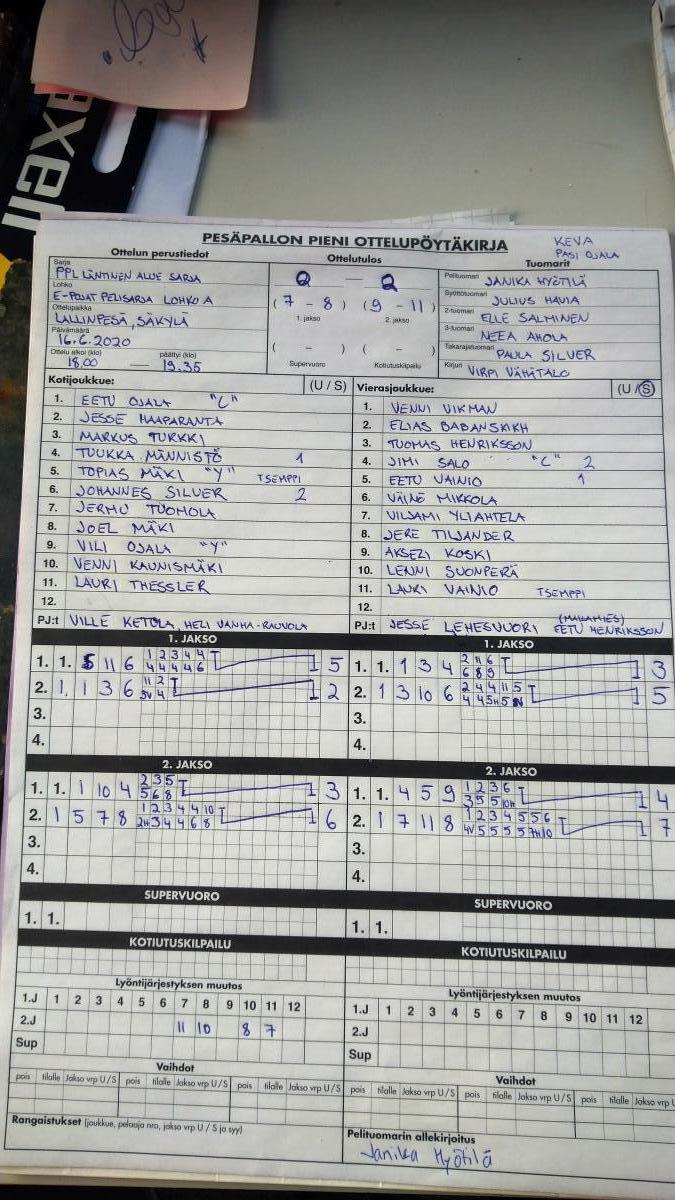 axell
PESÄPALLON PIENI OTTELUPÖYTÄKIRJA
KEVA
PASI OJALA
Ottelun perustiedot
Ottelutulos
Tuomarit
Sarja
PPL LÄNTINEN ALUE SARJA
Lohko
E-POJAT PELISARJA LOHKO A
Ottelupaikka
LALLINPESÄ, SÄKYLÄ
Päivämäärä
16.6.2020
Ottelu alkoi (klo) päättyi (klo)
18.00 — 19.35
0 — 2
(7 - 8) (9 - 11)
1. jakso 2. jakso
( - ) ( - )
Supervuoro Kotiutuskilpailu
Pelituomari JANIKA HYÖTILÄ
Syöttötuomari JULIUS HAVIA
2-tuomari ELLE SALMINEN
3-tuomari NEEA AHOLA
Takarajatuomari PAULA SILVER
Kirjuri VIRPI VÄHÄTALO
Kotijoukkue: (U / S)
1. EETU OJALA "C"
2. JESSE HAAPARANTA
3. MARKUS TURKKI
4. TUUKKA MÄNNISTÖ 1
5. TOPIAS MÄKI "Y" TSEMPPI
6. JOHANNES SILVER 2
7. JERMU TUOMOLA
8. JOEL MÄKI
9. VILI OJALA "Y"
10. VENNI KAUNISMÄKI
11. LAURI THESSLER
12.
PJ:t VILLE KETOLA, HELI VANHA-RAUVOLA
Vierasjoukkue: (U / S)
1. VENNI VIKMAN
2. ELIAS BABANSKIKH
3. TUOMAS HENRIKSSON
4. JIMI SALO "C" 2
5. EETU VAINIO 1
6. VÄINÖ MIKKOLA
7. VILJAMI YLIAHTELA
8. JERE TILJANDER
9. AKSELI KOSKI
10. LENNI SUONPERÄ
11. LAURI VAINIO TSEMPPI
12.
PJ:t JESSE LEHESVUORI EETU HENRIKSSON
1. JAKSO
1. 1. 5 11 6 1 2 3 4 4 1 5
4 4 4 4 6
2. 1. 1 3 6 11 2 1 2
3V 4
3.
4.
2. JAKSO
1. 1. 1 10 4 2 3 5 1 3
5 6 8
2. 1 5 7 8 1 2 3 4 4 10 1 6
2H 3 4 4 6 8
3.
4.
SUPERVUORO
1. 1.
KOTIUTUSKILPAILU
Lyöntijärjestyksen muutos
1.J 1 2 3 4 5 6 7 8 9 10 11 12
2.J 11 10 8 7
Sup
Vaihdot
pois tilalle Jakso vrp U / S pois tilalle Jakso vrp U / S pois tilalle Jakso vrp U / S
Rangaistukset (joukkue, pelaaja nro, jakso vrp U / S ja syy)
1. JAKSO
1. 1. 1 3 4 2 11 6 1 3
6 8 9
2. 1 3 10 6 2 4 4 11 5 1 5
3.
4.
2. JAKSO
1. 1. 4 5 9 1 2 3 6 1 4
3 5 5 10H
2. 1 7 11 8 1 2 3 4 5 5 6 1 7
4V 5 5 5 5 7H 10
3.
4.
SUPERVUORO
1. 1.
KOTIUTUSKILPAILU
Lyöntijärjestyksen muutos
1.J 1 2 3 4 5 6 7 8 9 10 11 12
2.J
Sup
Vaihdot
pois tilalle Jakso vrp U / S pois tilalle Jakso vrp U / S pois tilalle Jakso vrp U
Pelituomarin allekirjoitus
Janika Hyötilä